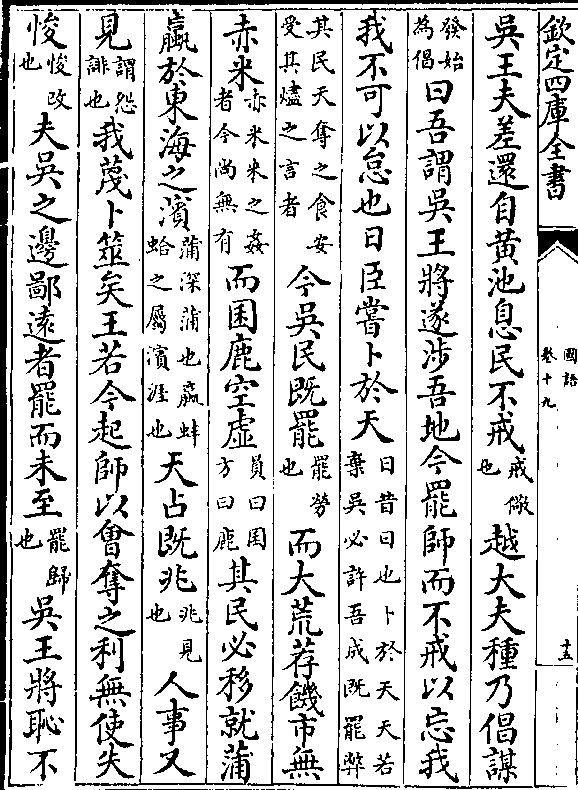 欽定四庫全書 國語 卷十九 十五
吳王夫差還自黃池息民不戒戒儆也越大夫種乃倡謀
發始為倡曰吾謂吳王將遂涉吾地今罷師而不戒以忘我
我不可以怠也日臣嘗卜於天日昔日也卜於天天若棄吳必許吾成既罷弊
其民天奪之食安受其燼之言者今吳民既罷罷勞也而大荒荐饑市無
赤米赤米米之姦者今尚無有而囷鹿空虛員曰囷方曰鹿其民必移就蒲
蠃於東海之濱蒲深蒲也蠃蚌蛤之屬濱涯也天占既兆兆見也人事又
見謂怨誹也我蔑卜筮矣王若今起師以會奪之利無使失
悛悛改也夫吳之邊鄙遠者罷而未至罷歸也吳王將恥不